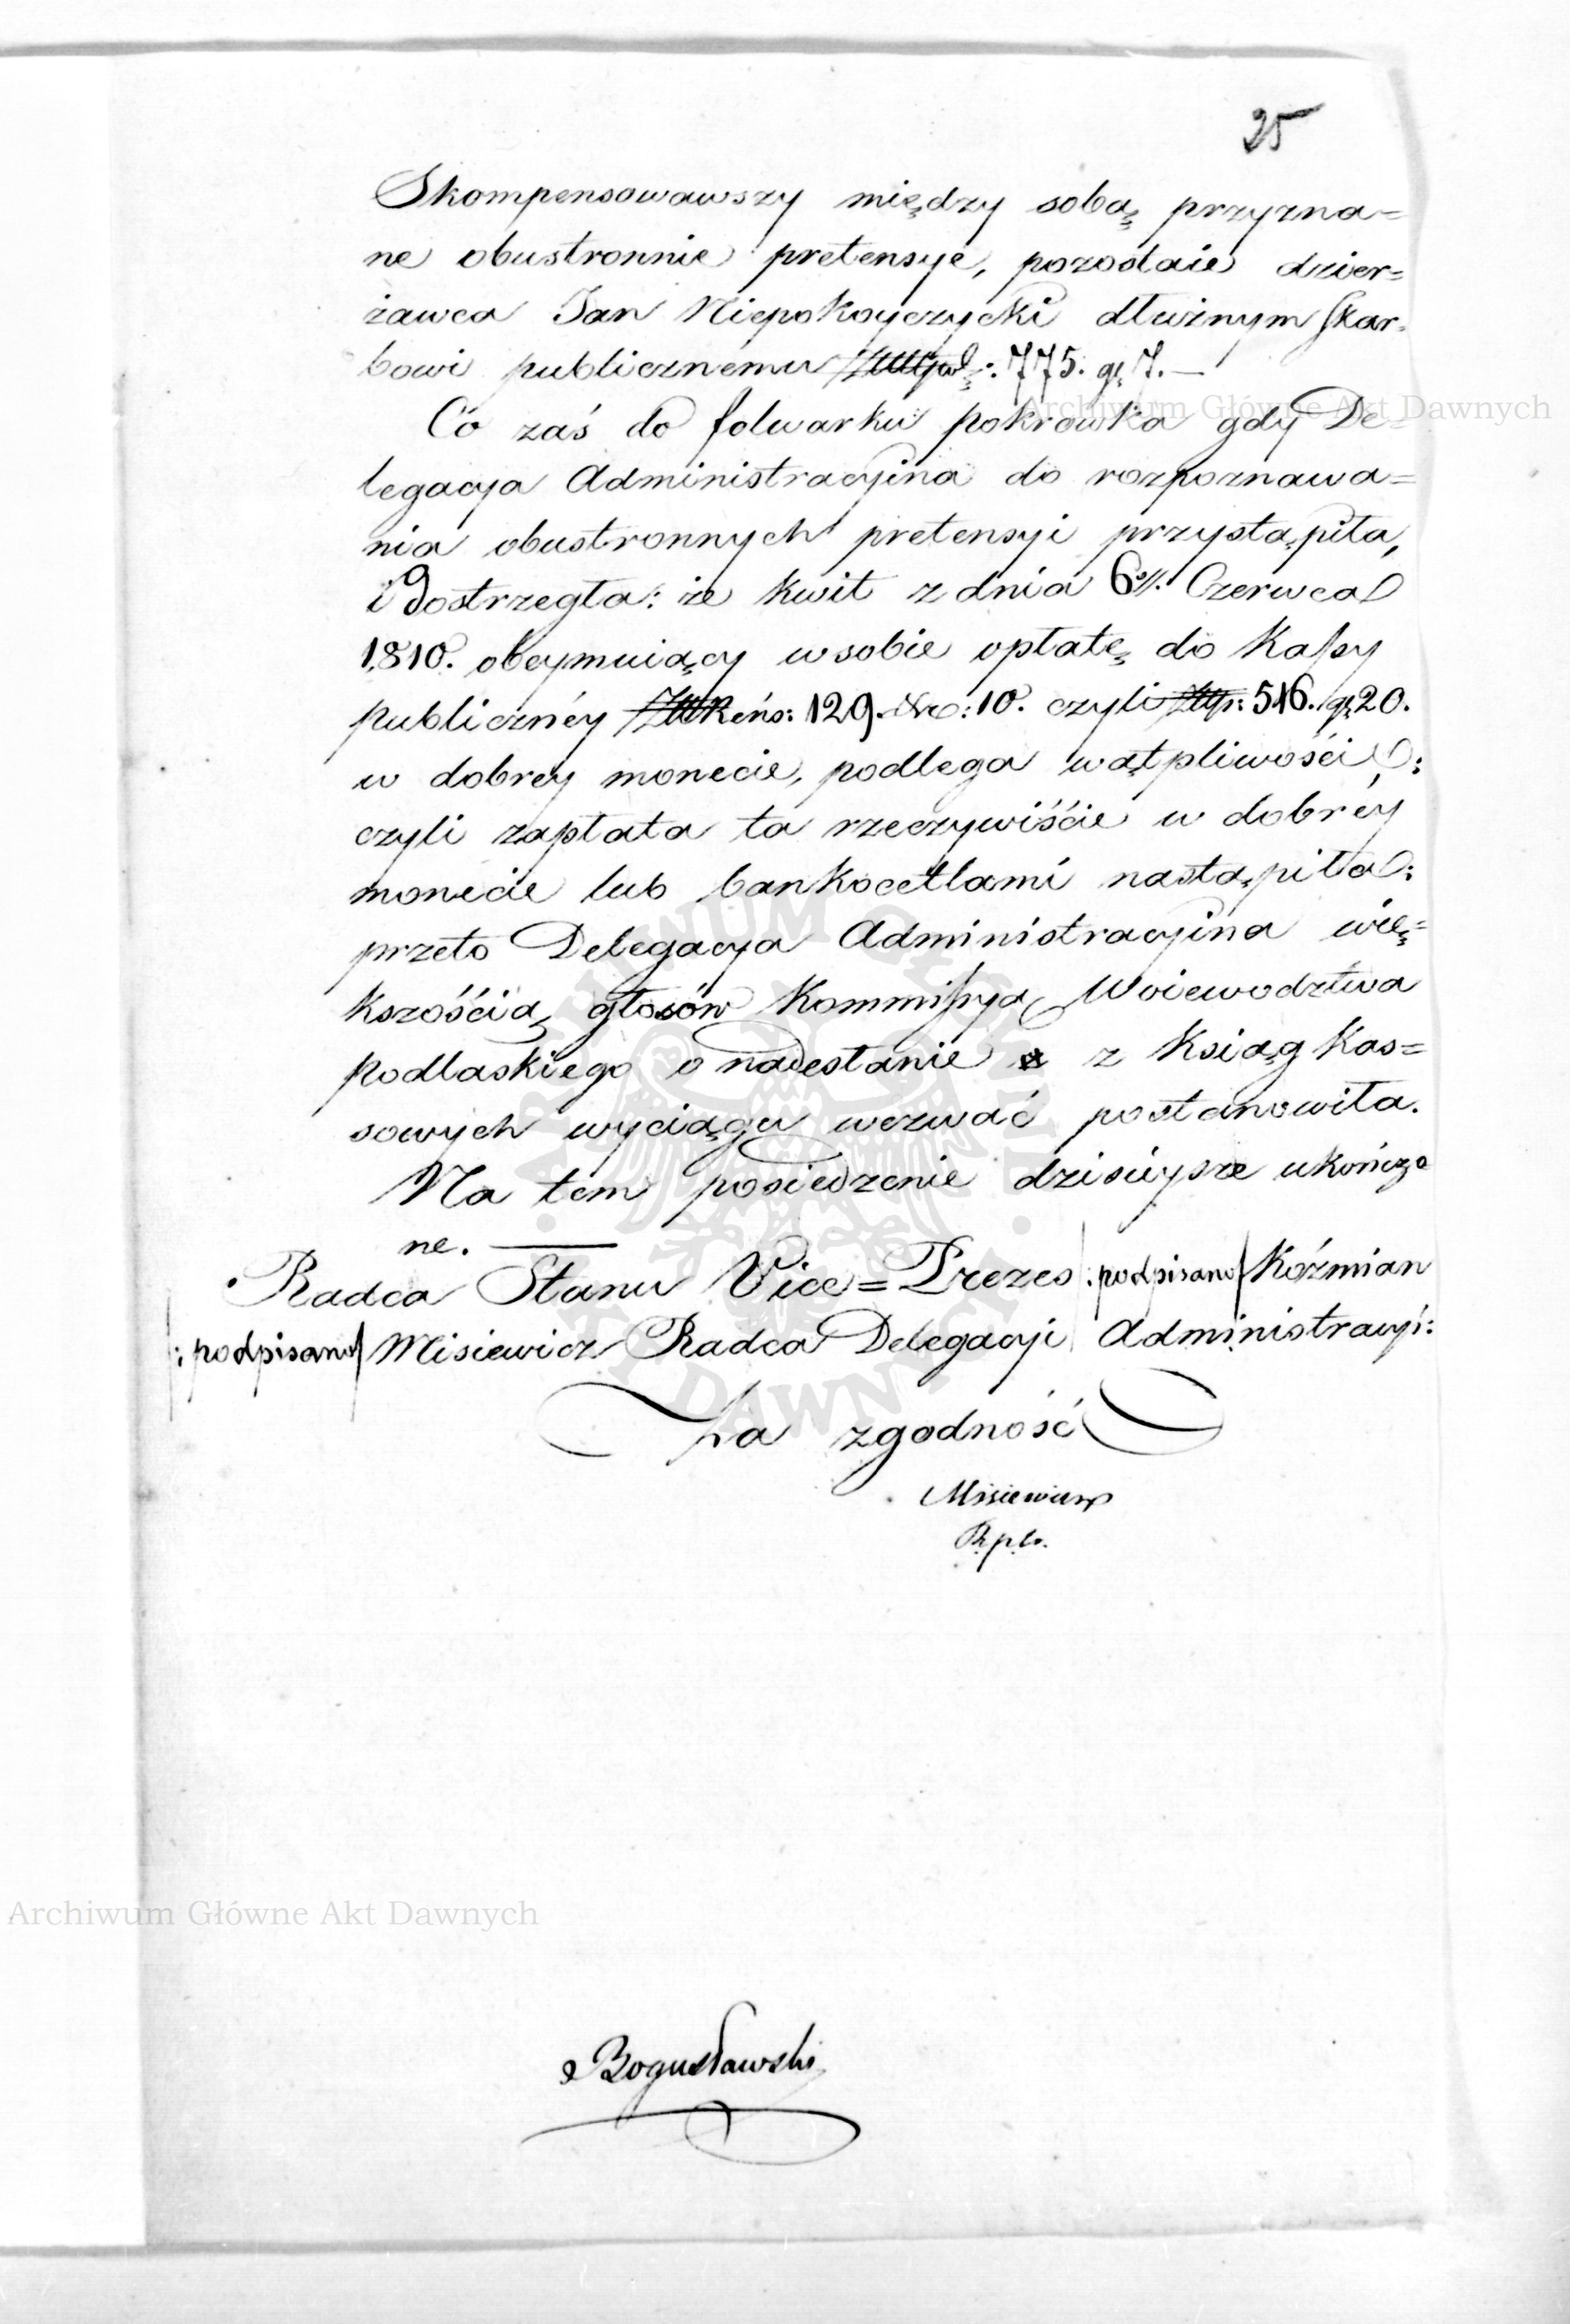 25
Skompensowawszy między sobą przyzna=
ne obustronnie pretensye, pozostaie dzier=
żawca Jan Niepokoyczycki dłużnym Skar=
bowi publicznemu Złtpol: 775. gr 7. —
Co zaś do folwarku pokrowka gdy De
legacya Administracyina do rozpoznawa=
nia obustronnych pretensyi przystąpiła,
i dostrzegła: że kwit z dnia 6go. Czerwca
1810. obeymuiący w sobie opłatę do Kassy
publicznéy ZłtReńs: 129. Xre: 10. czyli Złtp: 516. gr 20.
w dobrey monecie, podlega wątpliwości:
czyli zapłata ta rzeczywiście w dobréy
monecie lub bankocetlami nastąpiła:
przeto Delegacya Administracyina wię=
kszością głosów Kommissyą Woiewodztwa
podlaskiego o nadesłanie z Ksiąg Kas=
sowych wyciągu wezwać postanowiła.
Na tem posiedzenie dzisieysze ukończo
ne. —
Radca Stanu Vice=Prezes /: podpisano/ Koźmian
/: podpisano/ Misiewicz Radca Delegacyi Administracyi:
Za zgodność
Misiewicz
Bogusławski
Archiwum Główne Akt Dawnych
Archiwum Główne Akt Dawnych